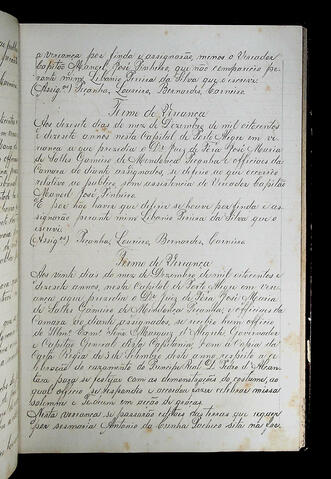 a vereança por finda e assignarão, menos o Vereador
Capitão Manoel José Pinheiro, que não compareceo pe-
rante mim Libanio Pereira da Silva que o escrevi.
(Assig.os) Peçanha, Loureiro, Bernardes, Carneiro.
Termo de Vereança
Aos dezeseis dias do mez de Dezembro de mil oitocentos
e dezesete annos nesta Capital de Porto Alegre em ve-
reança a que presidio o Dr. Juiz de Fóra José Maria
de Salles Gameiro de Mendonça Peçanha e officiaes da
Camara ao diante assignados, se deferio ao que occorreo
relativo ao publico com assistencia do Vereador Capitão
Manoel José Pinheiro.
E por não haver que deferir se houve por finda e as-
signarão perante mim Libanio Pereira da Silva que o
escrevi.
(Assig.os) Peçanha, Loureiro, Bernardes, Carneiro
Termo de Vereança
Aos vinte dias do mez de Dezembro de mil oitocentos e
dezesete annos, nesta Capital de Porto Alegre em vere-
ança a que presidio o Dr. Juiz de Fóra José Maria
de Salles Gameiro de Mendonça Peçanha, e officiaes da
Camara ao diante assignados, se recebeo hum officio
do Illmo. Exmo. Snr. Marquez d'Alegrete Governador
e Capitão General desta Capitania com a copia da
Carta Regia de 3 de Setembro deste anno respeito a ce-
lebração do cazamento do Principe Real D. Pedro d'Alcan-
tara para se festejar com as demonstrações do costume, ao
qual officio se respondeo e accordou fazer celebrar missa
solemne e Te Deum em acção de graças.
Nesta vereança se passarão editaes das terras que requer
por sesmaria Antonio da Cunha Pacheco sitas na Cos-